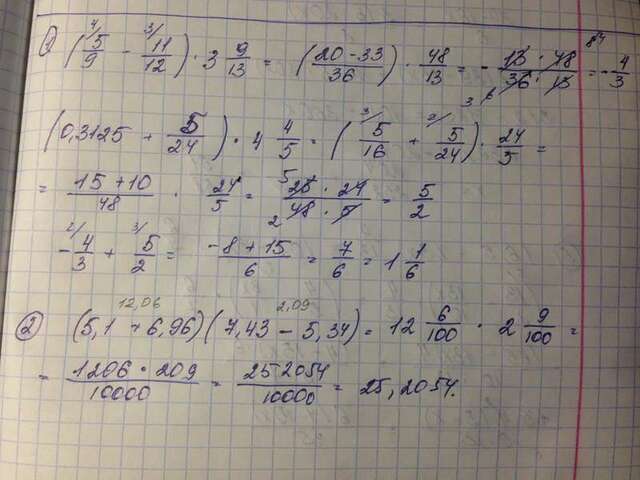 ① (5/9 - 11/12) · 3 9/13 = (20-33/36) · 48/13 = - 13 · 48/36 · 13 = - 4/3
(0,3125 + 5/24) · 4 4/5 = (5/16 + 5/24) · 24/5 =
= 15+10/48 · 24/5 = 25 · 24/48 · 5 = 5/2
- 4/3 + 5/2 = -8+15/6 = 7/6 = 1 1/6
12,06 2,09
② (5,1 + 6,96)(7,43 - 5,34) = 12 6/100 · 2 9/100 =
= 1206 · 209/10000 = 252054/10000 = 25,2054.